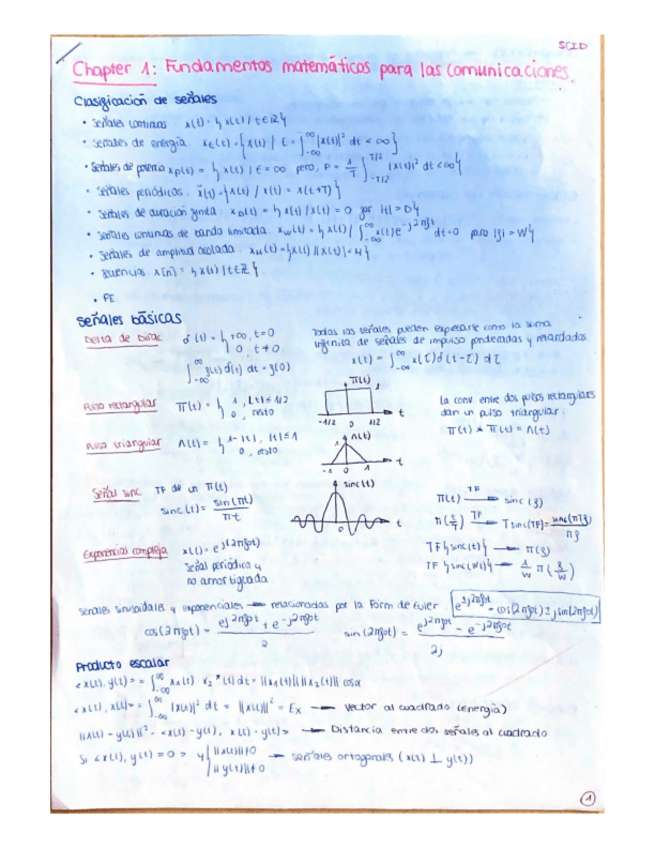 SCID
Chapter 1: Fundamentos matemáticos para las comunicaciones.
Clasificación de señales
• Señales continuas x(t) = {x(t) / t∈ℝ}
• Señales de energía. x_E(t) = {x(t) / E = ∫_{-∞}^{∞} |x(t)|² dt < ∞}
• Señales de potencia x_P(t) = {x(t) / E = ∞ pero, P = 1/T ∫_{-T/2}^{T/2} |x(t)|² dt < ∞}
• Señales periódicas. x̃(t) = {x(t) / x(t) = x(t+T)}
• Señales de duración finita. x_D(t) = {x(t) / x(t) = 0 for |t| > D}
• Señales continuas de banda limitada. x_W(t) = {x(t) / ∫_{-∞}^{∞} x(t) e^{-j2πft} dt = 0 para |f| > W}
• Señales de amplitud acotada. x_M(t) = {x(t) / |x(t)| < M}
x[n] = {x(t) | t∈ℤ}
• PE
Señales básicas
Delta de Dirac δ(t) = { +∞, t=0
0, t≠0
∫_{-∞}^{∞} g(t) δ(t) dt = g(0)
Todas las señales pueden expresarse como la suma
infinita de señales de impulso ponderadas y retardadas
x(t) = ∫_{-∞}^{∞} x(τ) δ(t-τ) dτ
Pulso rectangular Π(t) = { 1, |t| ≤ 1/2
0, resto
Π(t)
1
-1/2 0 1/2 t
La conv. entre dos pulsos rectangulares
dan un pulso triangular:
Π(t) * Π(t) = Λ(t)
Pulso triangular Λ(t) = { 1-|t|, |t| ≤ 1
0, resto
Λ(t)
1
-1 0 1 t
Señal sinc TF de un Π(t)
sinc(t) = sin(πt) / πt
sinc(t)
1
0 t
Π(t) TF→ sinc(f)
Π(t/T) TF→ T sinc(Tf) = sinc(πTf) / πf
TF{sinc(t)} → Π(f)
TF{sinc(Wt)} → 1/W Π(f/W)
Exponencial compleja x(t) = e^{j(2πf₀t)}
Señal periódica y
no amortiguada
Señales sinusoidales y exponenciales → relacionadas por la Form. de Euler. e^{±j2πf₀t} = cos(2πf₀t) ± j sin(2πf₀t)
cos(2πf₀t) = (e^{j2πf₀t} + e^{-j2πf₀t}) / 2 sin(2πf₀t) = (e^{j2πf₀t} - e^{-j2πf₀t}) / 2j
Producto escalar
<x(t), y(t)> = ∫_{-∞}^{∞} x₁(t) · x₂*(t) dt = ||x₁(t)|| ||x₂(t)|| cos α
<x(t), x(t)> = ∫_{-∞}^{∞} |x(t)|² dt = ||x(t)||² = Ex → Vector al cuadrado (energía)
||x(t) - y(t)||² = <x(t) - y(t), x(t) - y(t)> → Distancia entre dos señales al cuadrado
Si <x(t), y(t)> = 0 > y { ||x(t)|| ≠ 0
||y(t)|| ≠ 0 → señales ortogonales (x(t) ⊥ y(t))
1